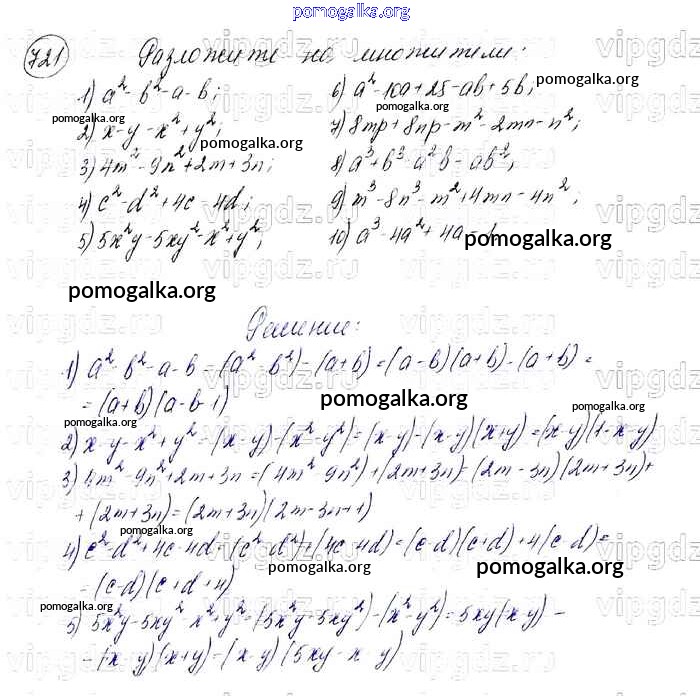 pomogalka.org
721 Разложите на множители:
1) a² - b² - a - b;
2) x - y - x² + y²;
3) 4m² - 9n² + 2m + 3n;
4) c² - d² + 4c - 4d;
5) 5x²y - 5xy² - x² + y²;
6) a² - 10a + 25 - ab + 5b;
7) 8mp + 8np - m² - 2mn - n²;
8) a³ + b³ - a²b - ab²;
9) m³ - 8n³ - m² + 4mn - 4n²;
10) a³ - 4a² + 4a -
pomogalka.org
Решение:
1) a² - b² - a - b = (a² - b²) - (a + b) = (a - b)(a + b) - (a + b) =
= (a + b)(a - b - 1)
2) x - y - x² + y² = (x - y) - (x² - y²) = (x - y) - (x - y)(x + y) = (x - y)(1 - x - y)
3) 4m² - 9n² + 2m + 3n = (4m² - 9n²) + (2m + 3n) = (2m - 3n)(2m + 3n) +
+ (2m + 3n) = (2m + 3n)(2m - 3n + 1)
4) c² - d² + 4c - 4d = (c² - d²) + (4c - 4d) = (c - d)(c + d) + 4(c - d) =
= (c - d)(c + d + 4)
5) 5x²y - 5xy² - x² + y² = (5x²y - 5xy²) - (x² - y²) = 5xy(x - y) -
- (x - y)(x + y) = (x - y)(5xy - x - y)